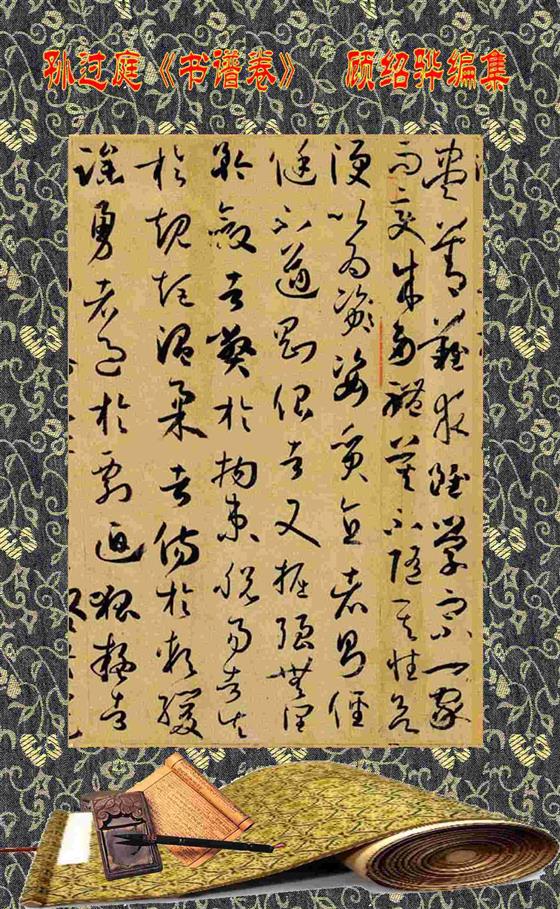 孙过庭《书谱卷》 顾绍骅编集
盡善難求雖學宗一家
而變成多體莫不隨其性欲
便以為姿質直者則徑
侹不遒剛佷者又掘強無潤
矜斂者弊於拘束脫易者失
於規矩溫柔者傷於軟緩
躁勇者過於剽迫狐疑者